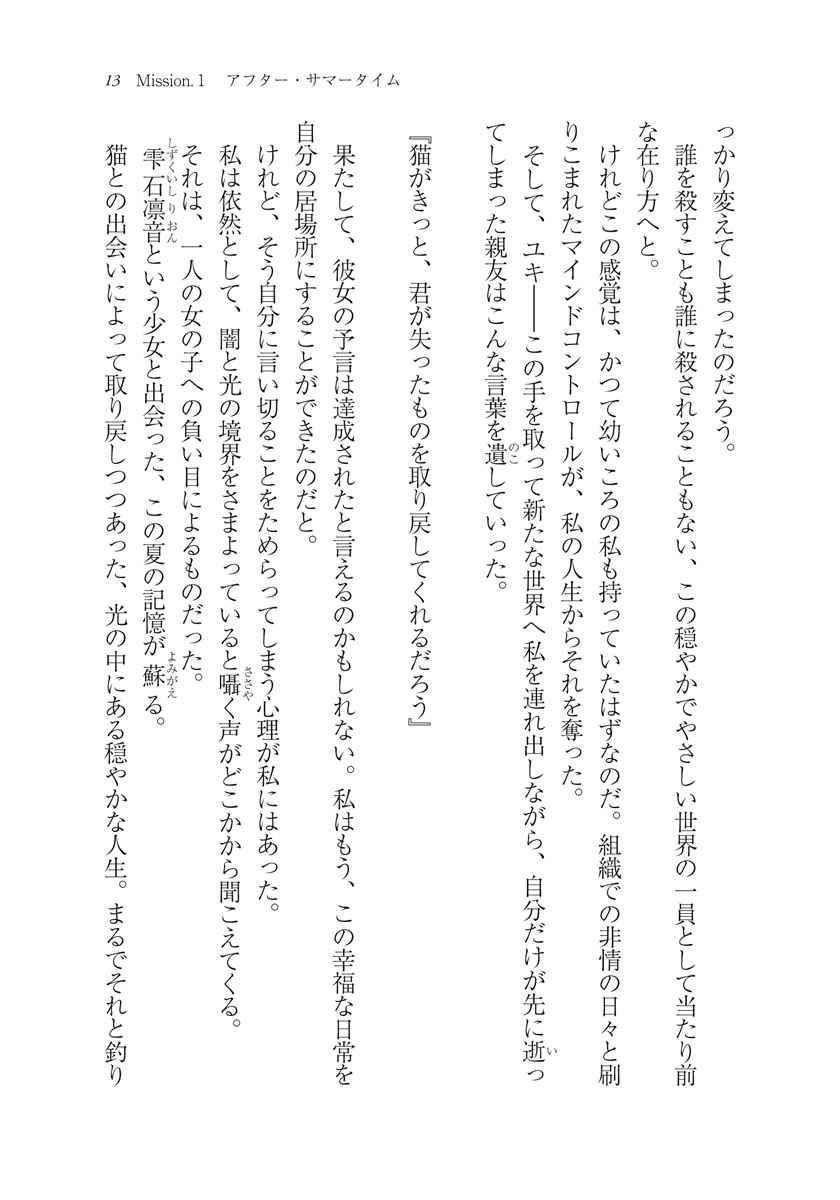 13 Mission.1 アフター・サマータイム
っかり変えてしまったのだろう。
誰を殺すことも誰に殺されることもない、この穏やかでやさしい世界の一員として当たり前
な在り方へと。
けれどこの感覚は、かつて幼いころの私も持っていたはずなのだ。組織での非情の日々と刷
りこまれたマインドコントロールが、私の人生からそれを奪った。
そして、ユキ――この手を取って新たな世界へ私を連れ出しながら、自分だけが先に逝っ
てしまった親友はこんな言葉を遺していった。
『猫がきっと、君が失ったものを取り戻してくれるだろう』
果たして、彼女の予言は達成されたと言えるのかもしれない。私はもう、この幸福な日常を
自分の居場所にすることができたのだと。
けれど、そう自分に言い切ることをためらってしまう心理が私にはあった。
私は依然として、闇と光の境界をさまよっていると囁く声がどこかから聞こえてくる。
それは、一人の女の子への負い目によるものだった。
雫石凛音という少女と出会った、この夏の記憶が蘇る。
猫との出会いによって取り戻しつつあった、光の中にある穏やかな人生。まるでそれと釣り